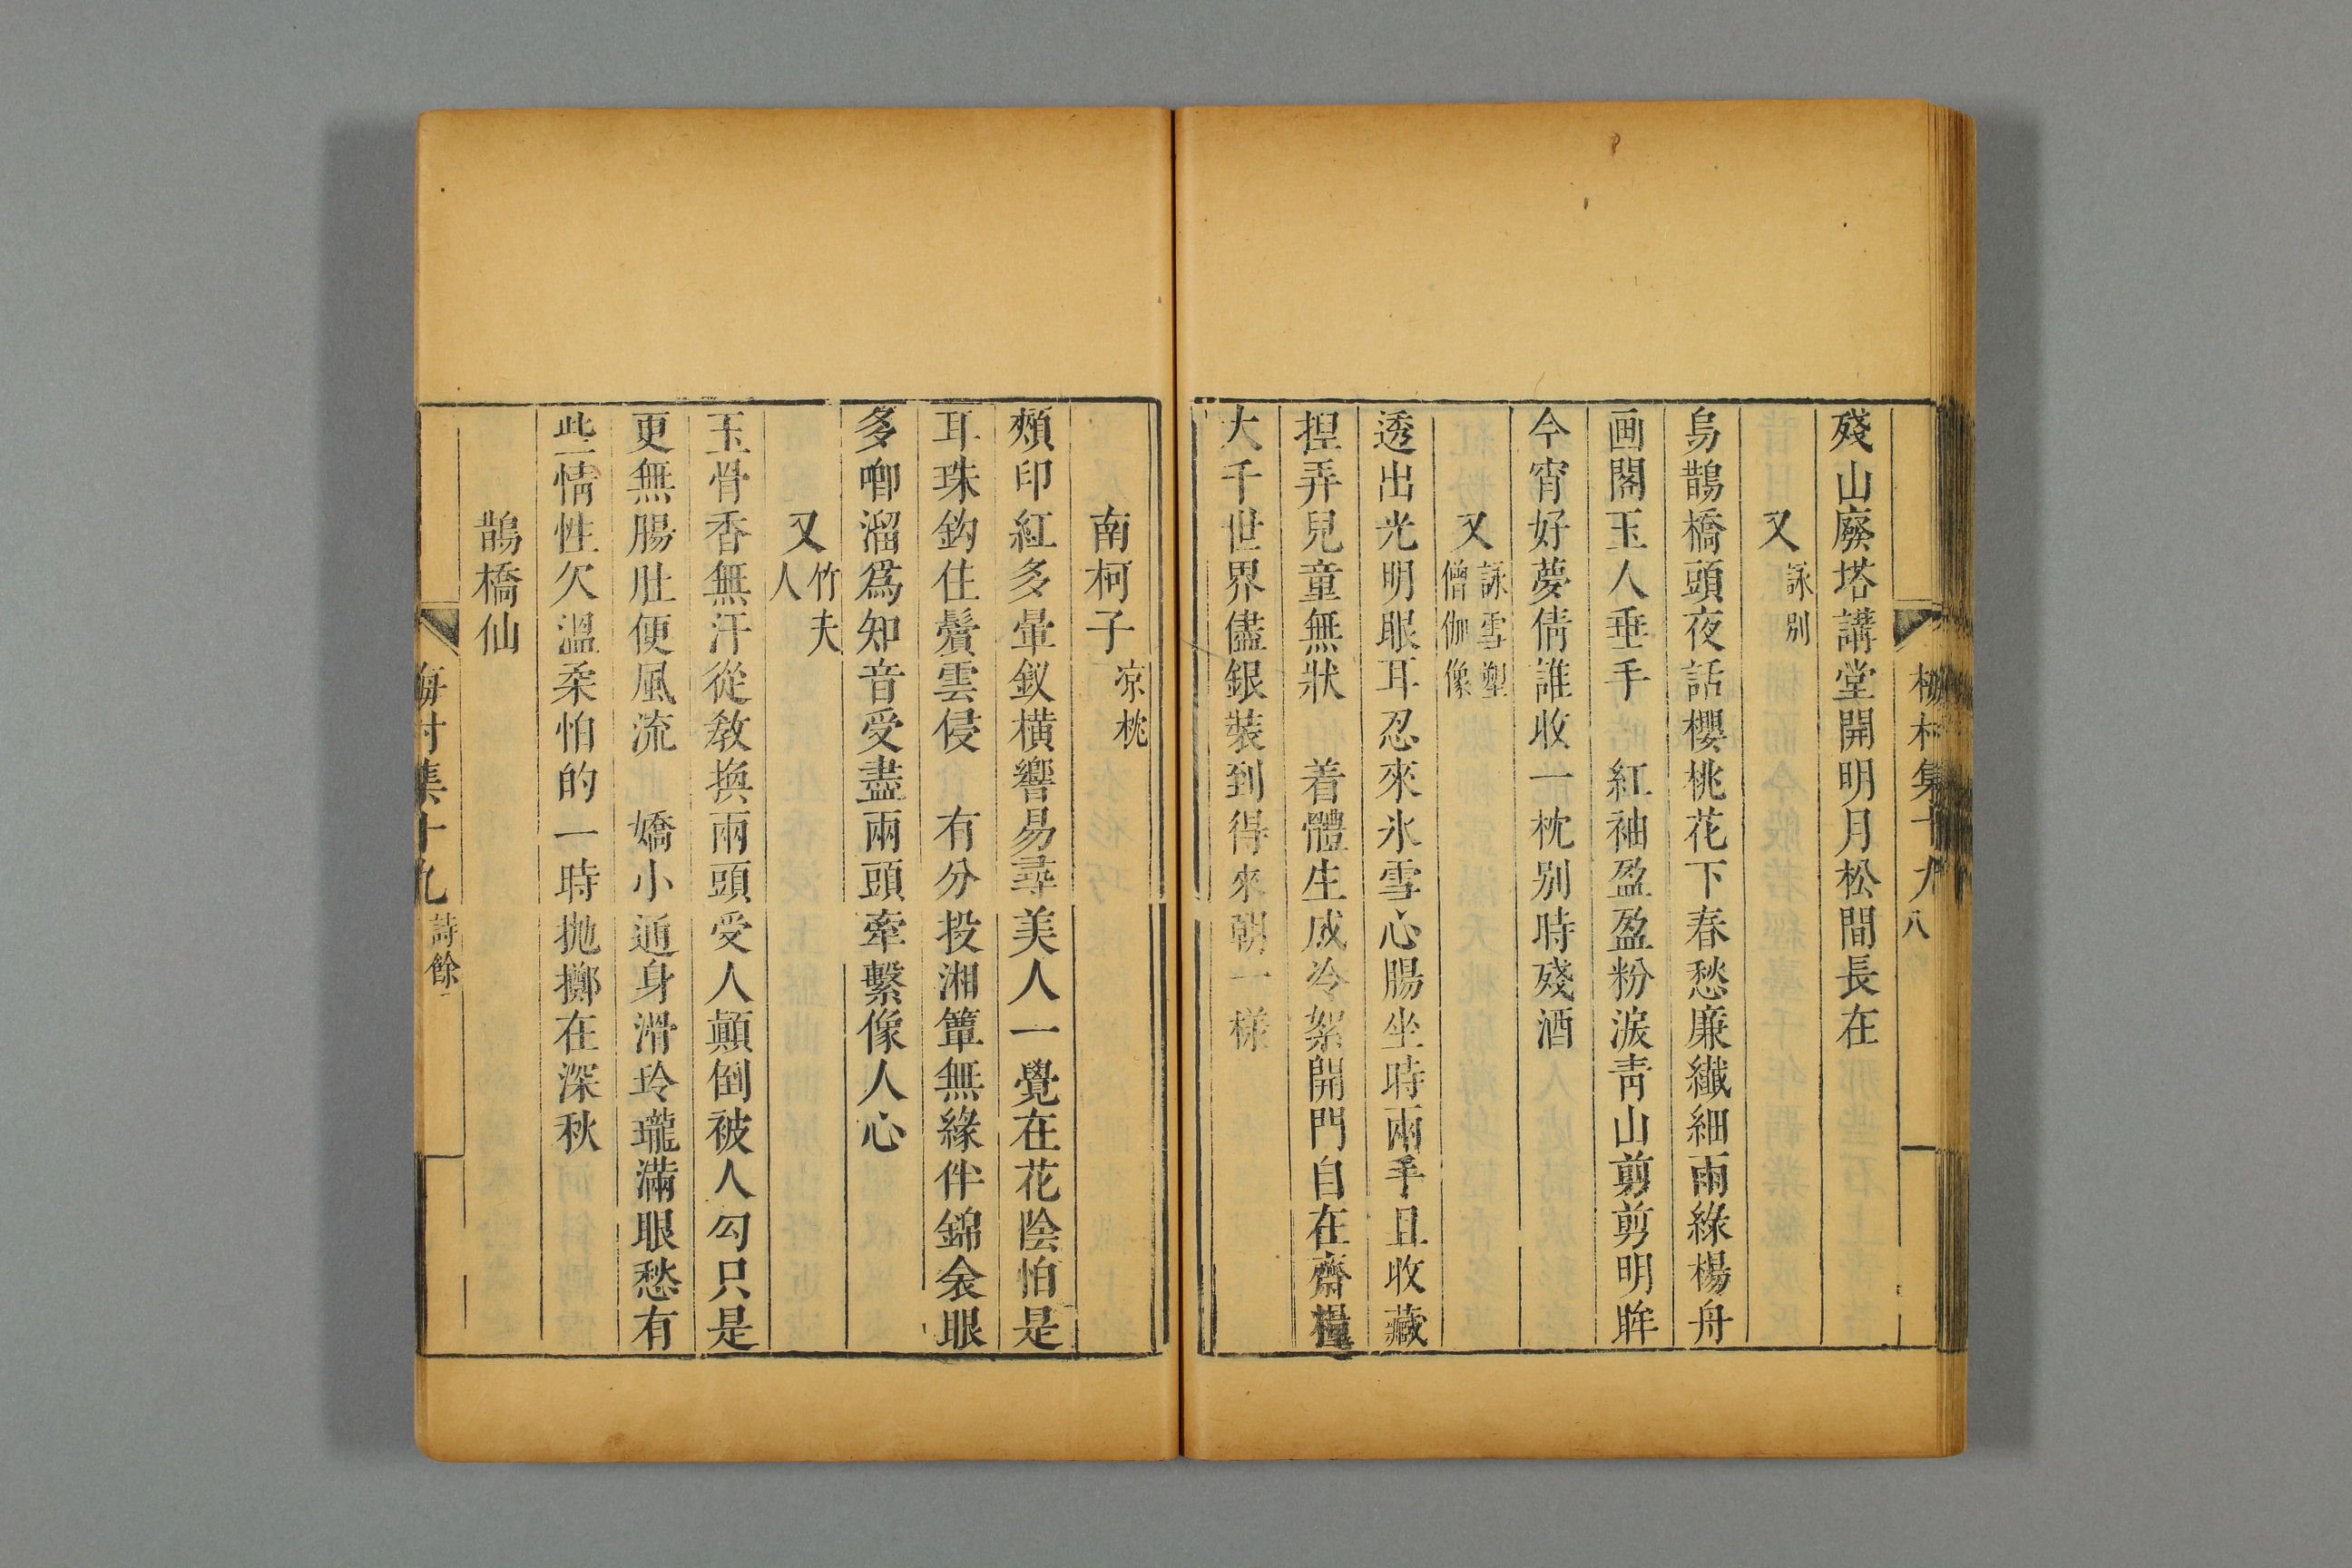 殘山廢塔講堂開明月松間長在
又詠別
烏鵲橋頭夜話櫻桃花下春愁廉纖細雨綠楊舟
画閣玉人垂手 紅袖盈盈粉淚青山剪剪明眸
今宵好夢倩誰收一枕別時殘酒
又詠雪塑僧伽像
透出光明眼耳忍來氷雪心腸坐時兩手且收藏
捏弄兒童無狀 着體生成冷絮開門自在齋糧
大千世界儘銀裝到得來朝一樣
南柯子凉枕
頰印紅多暈釵橫響易尋美人一覺在花陰怕是
耳珠鈎住鬢雲侵 有分投湘簟無緣伴錦衾眼
多唧溜爲知音受盡兩頭牽繫像人心
又竹夫人
玉骨香無汗從教換兩頭受人顛倒被人勾只是
更無腸肚便風流 嬌小通身滑玲瓏滿眼愁有
些情性欠溫柔怕的一時抛擲在深秋
鵲橋仙
梅村集十九 詩餘